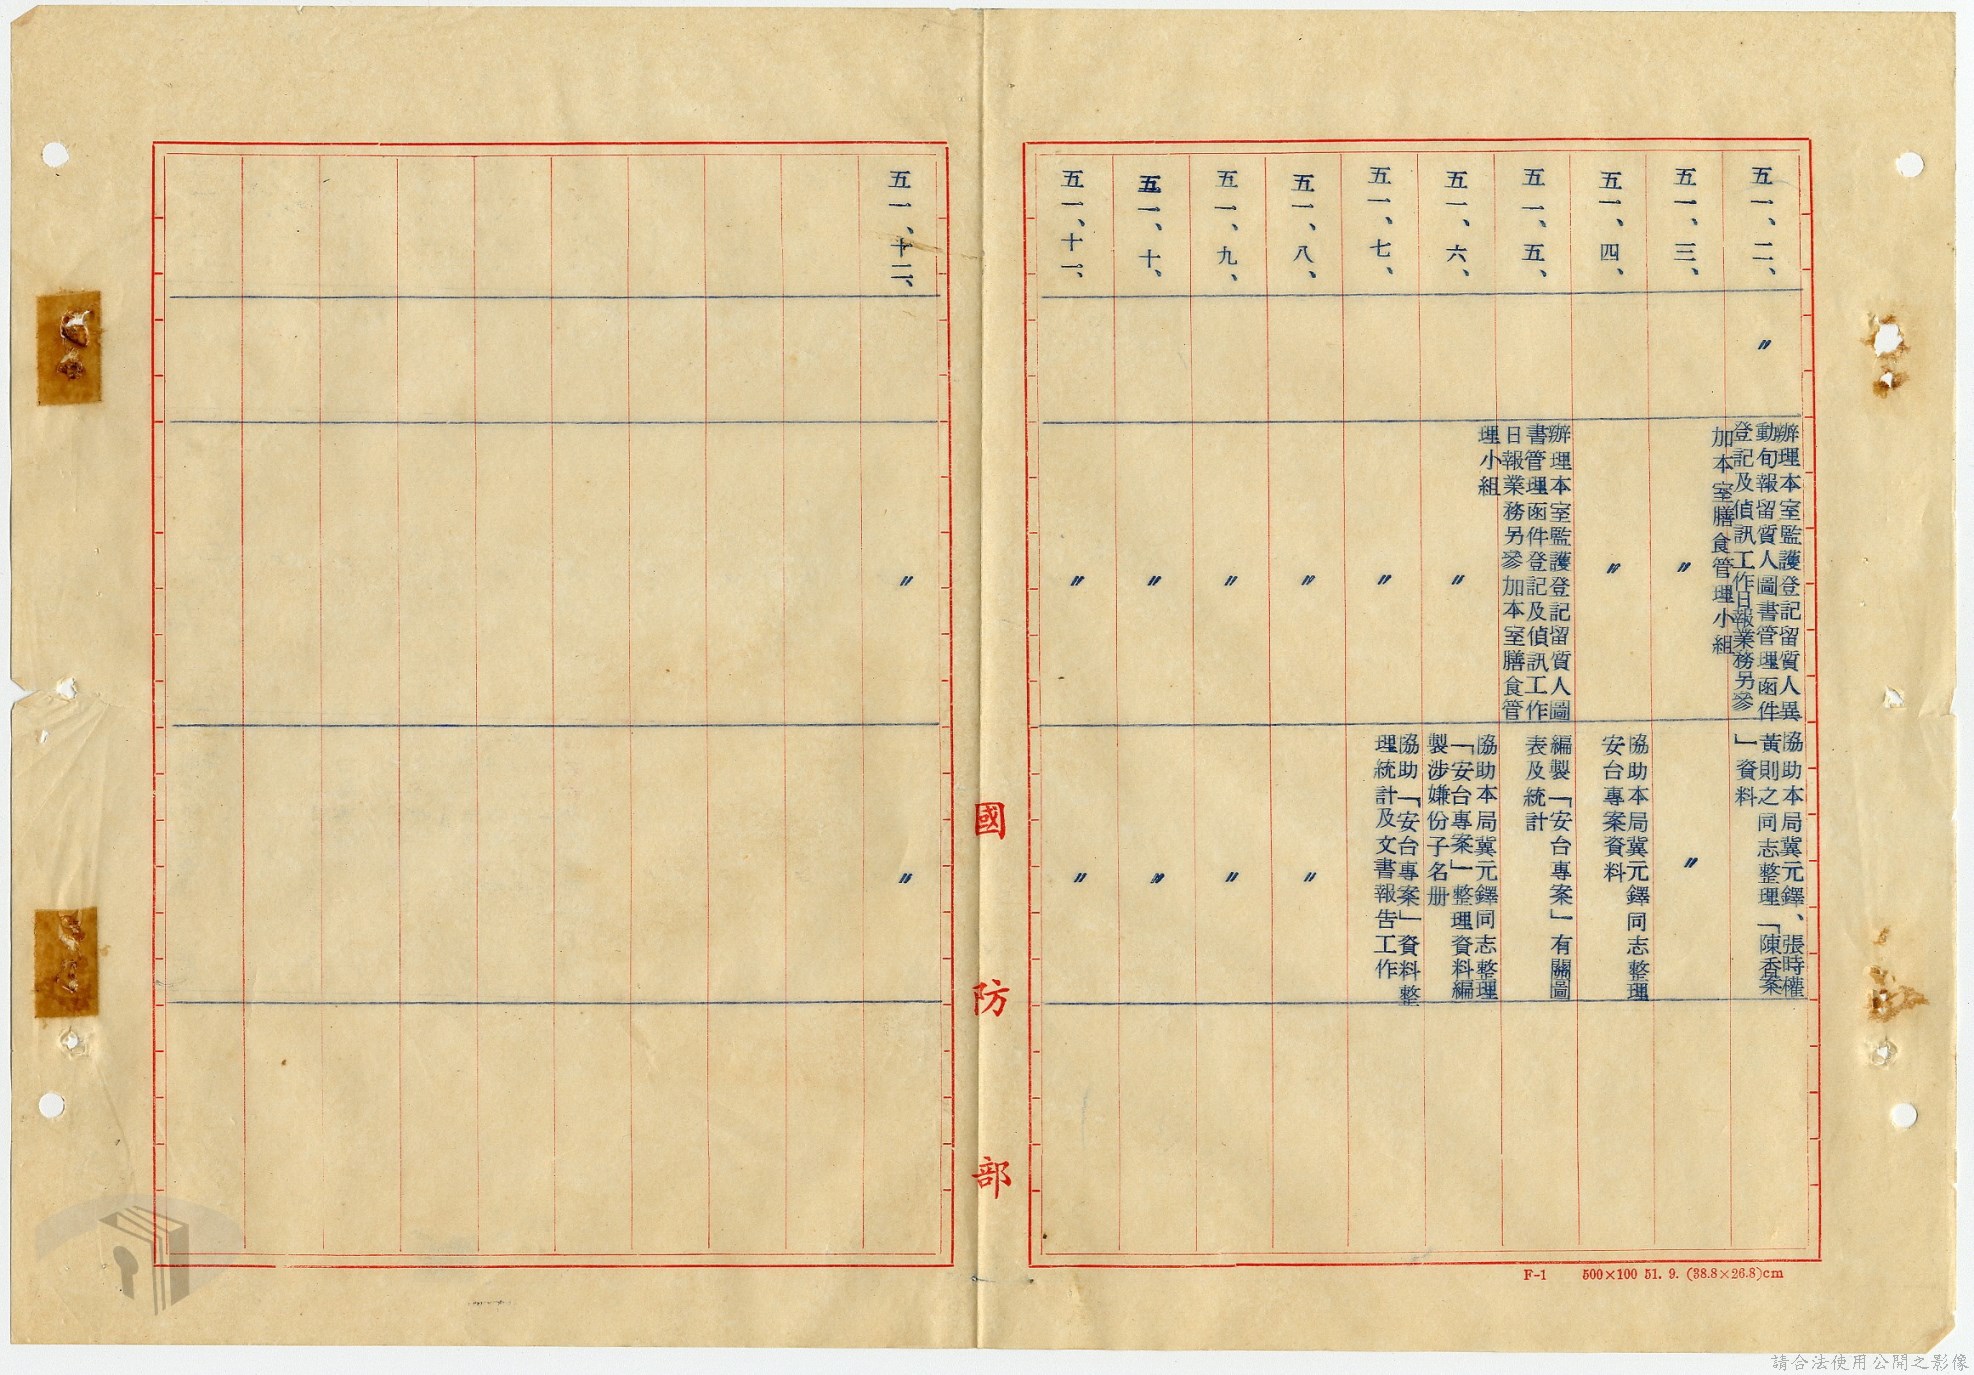 五一、二、
〃
辦理本室監護登記留質人異
動旬報留質人圖書管理函件
登記及偵訊工作日報業務另參
加本室膳食管理小組
協助本局冀元鐸、張時權
黃則之同志整理「陳香案
」資料
五一、三、
〃
〃
五一、四、
〃
協助本局冀元鐸同志整理
安台專案資料
五一、五、
辦理本室監護登記留質人圖
書管理函件登記及偵訊工作
日報業務另參加本室膳食管
理小組
編製「安台專案」有關圖
表及統計
五一、六、
〃
協助本局冀元鐸同志整理
「安台專案」整理資料編
製涉嫌份子名册
五一、七、
〃
協助「安台專案」資料整
理統計及文書報告工作
五一、八、
〃
〃
五一、九、
〃
〃
五一、十、
〃
〃
五一、十一、
〃
〃
國防部
五一、十二、
〃
〃
F-1 500×100 51. 9. (38.8×26.8)cm
請合法使用公開之影像